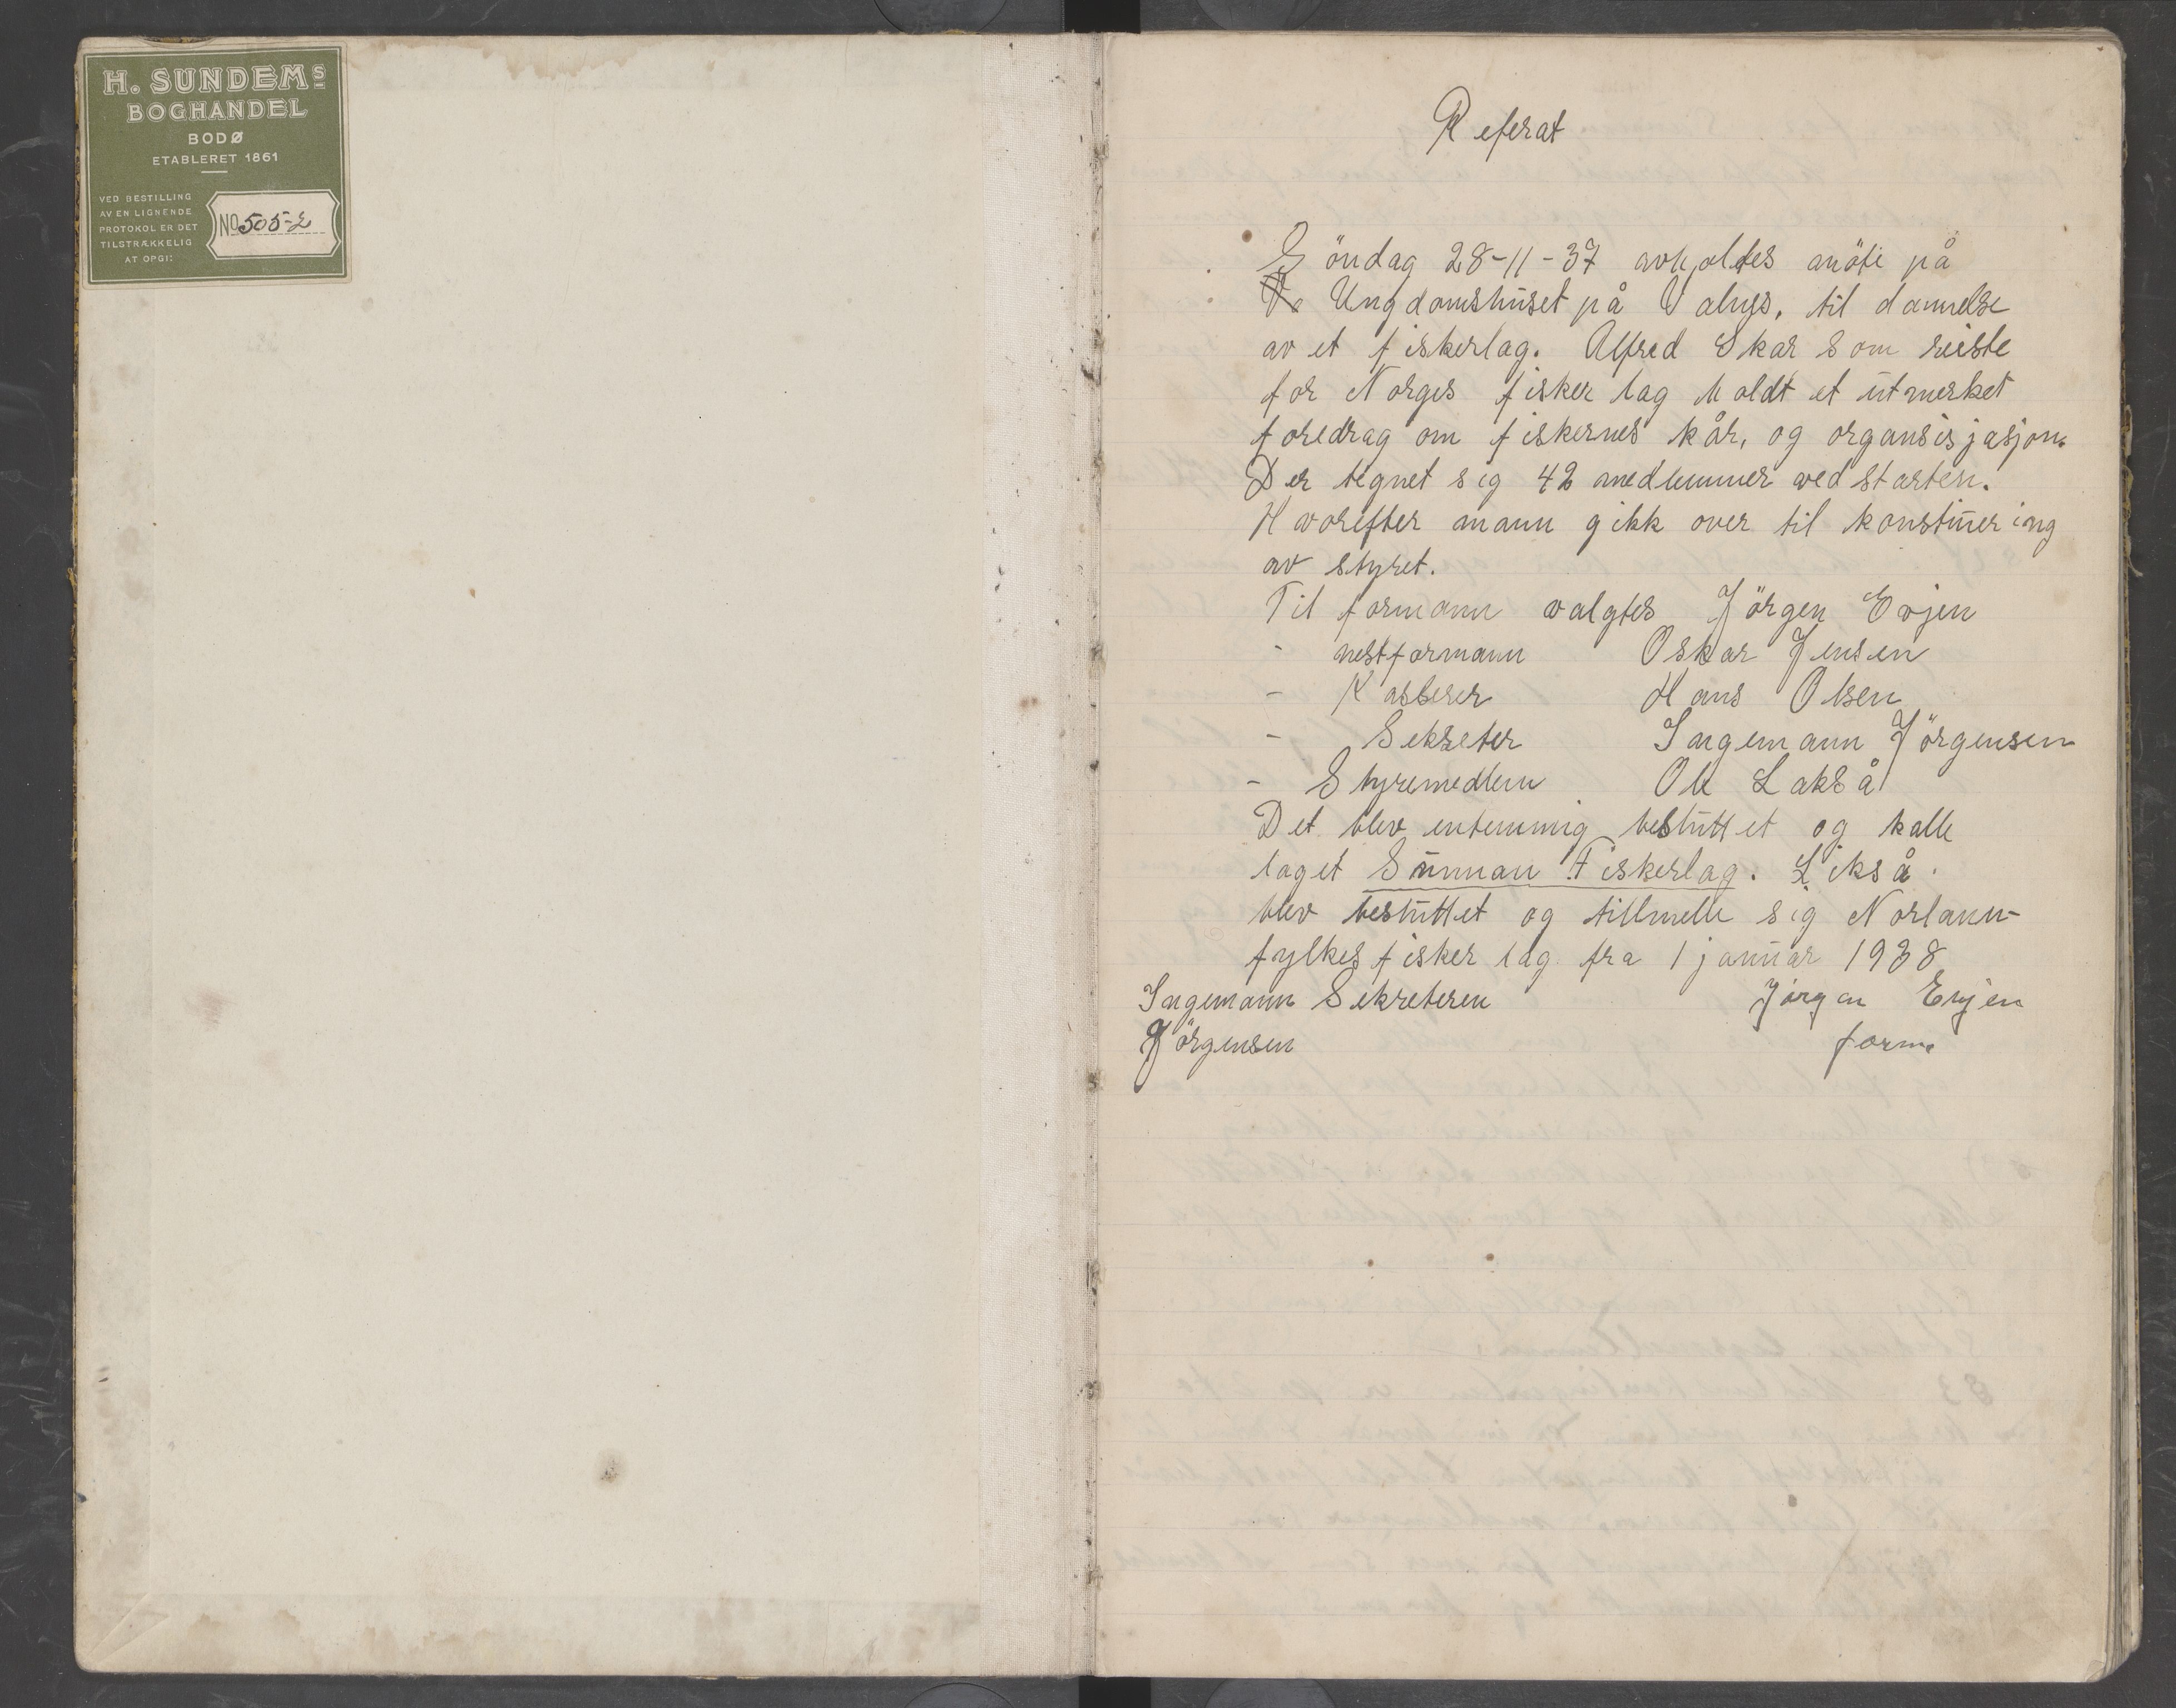 H. SUNDEMS
BOGHANDEL
BODØ
ETABLERET 1861
VED BESTILLING
AV EN LIGNENDE
PROTOKOL ER DET
TILSTRÆKKELIG
AT OPGI:
No 505-2
Referat
Söndag 28-11-37 avholdes möte på
Ungdomshuset på Valnes, til dannelse
av et fiskerlag. Alfred Skar som reiste
for Norges fiskerlag holdt et utmerket
foredrag om fiskernes kår, og organsisjasjon.
Der tegnet sig 42 medlemmer ved starten.
Hvorefter mann gikk over til konstituering
av styret.
Til formann valgtes Jörgen Evjen
- nestformann Oskar Jensen
- Kasserer Hans Olsen
- Sekreter Ingemann Jörgensen
- Styremedlem Ole Lakså
Det blev enstemmig besluttet og kalle
laget Sunnan Fiskerlag. Likså
blev besluttet og tillmelle sig Norlann-
fylkes fiskerlag fra 1 januar 1938
Ingemann Sekreteren Jörgen Evjen
Jörgensen form.